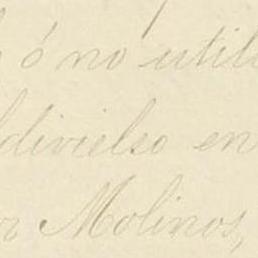 ó no utili
ldivielso en
or Molinos,